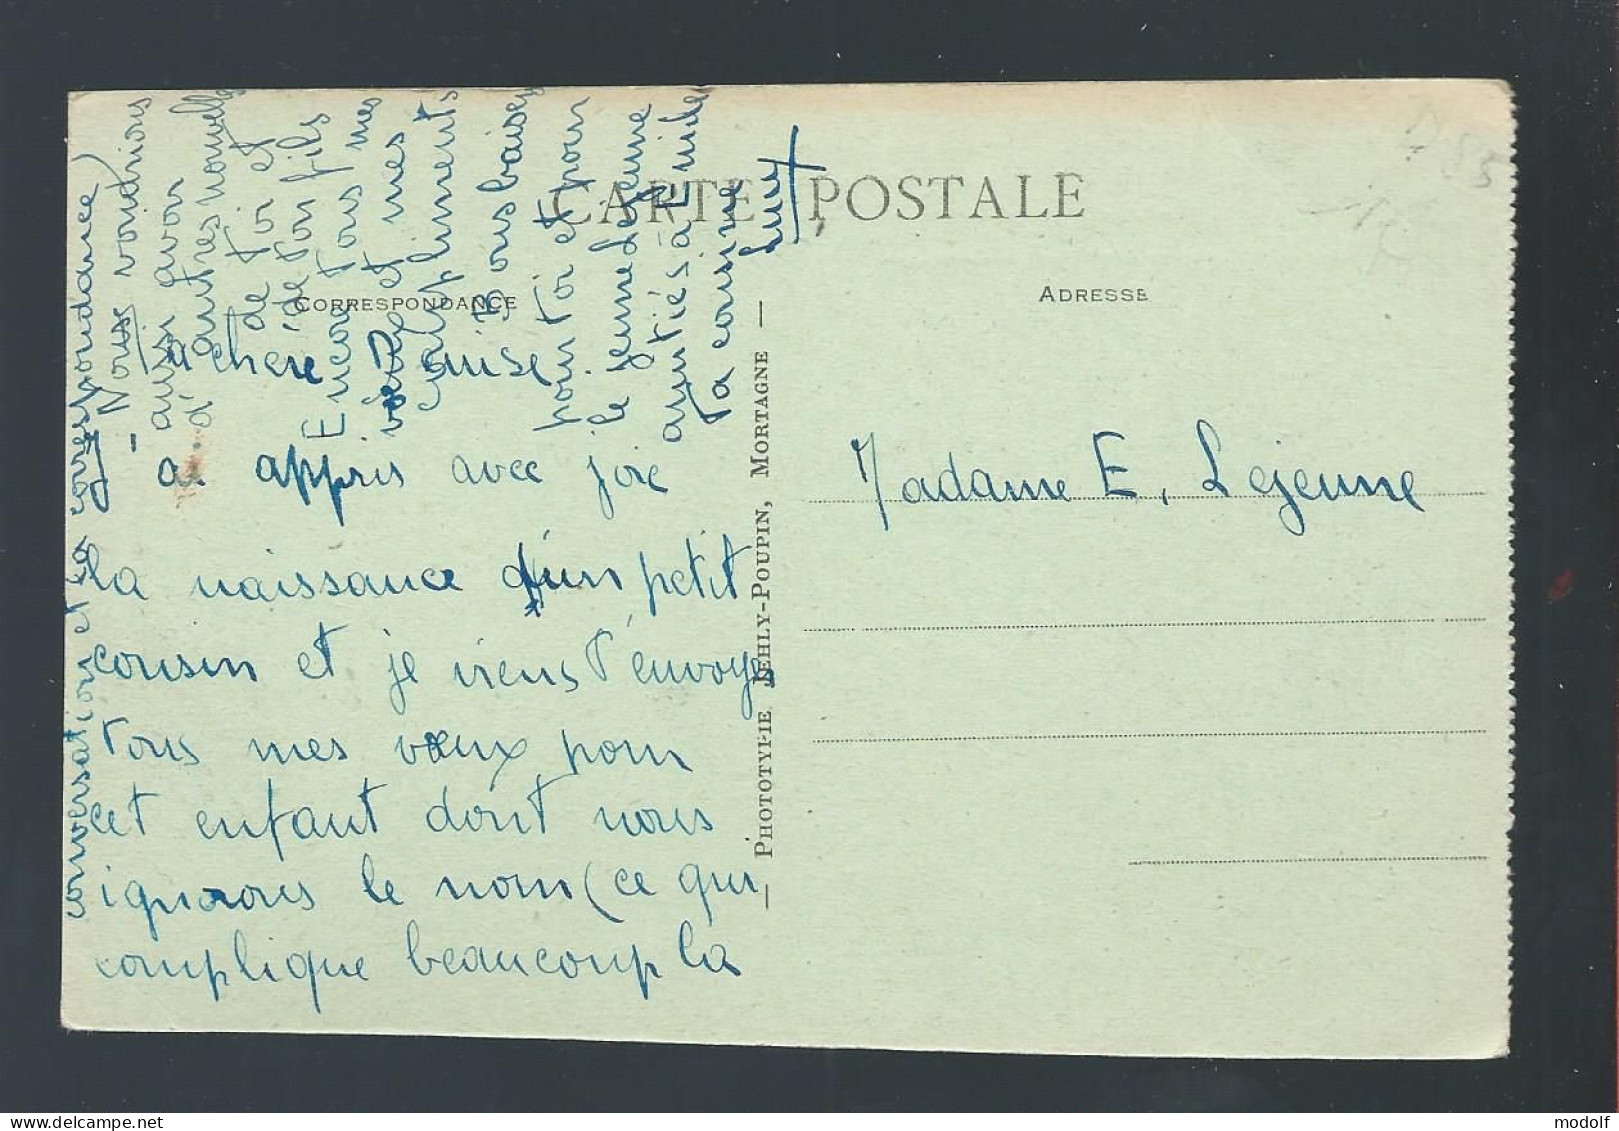 CARTE POSTALE
CORRESPONDANCE
ADRESSE
Ma chère Denise
J'ai appris avec joie
la naissance d'un petit
cousin et je viens t'envoyer
tous mes vœux pour
cet enfant dont nous
ignorons le nom (ce qui
complique beaucoup la
conversation et la correspondance)
Nous voudrions
aussi avoir
d'autres nouvelles
de toi et
de ton fils
Encore tous mes
vœux et mes
compliments
Bons baisers
pour toi et pour
le jeune
amitiés à
ta cousine
— PHOTOTYPIE JEHLY-POUPIN, MORTAGNE —
Madame E. Lejeune
modolf